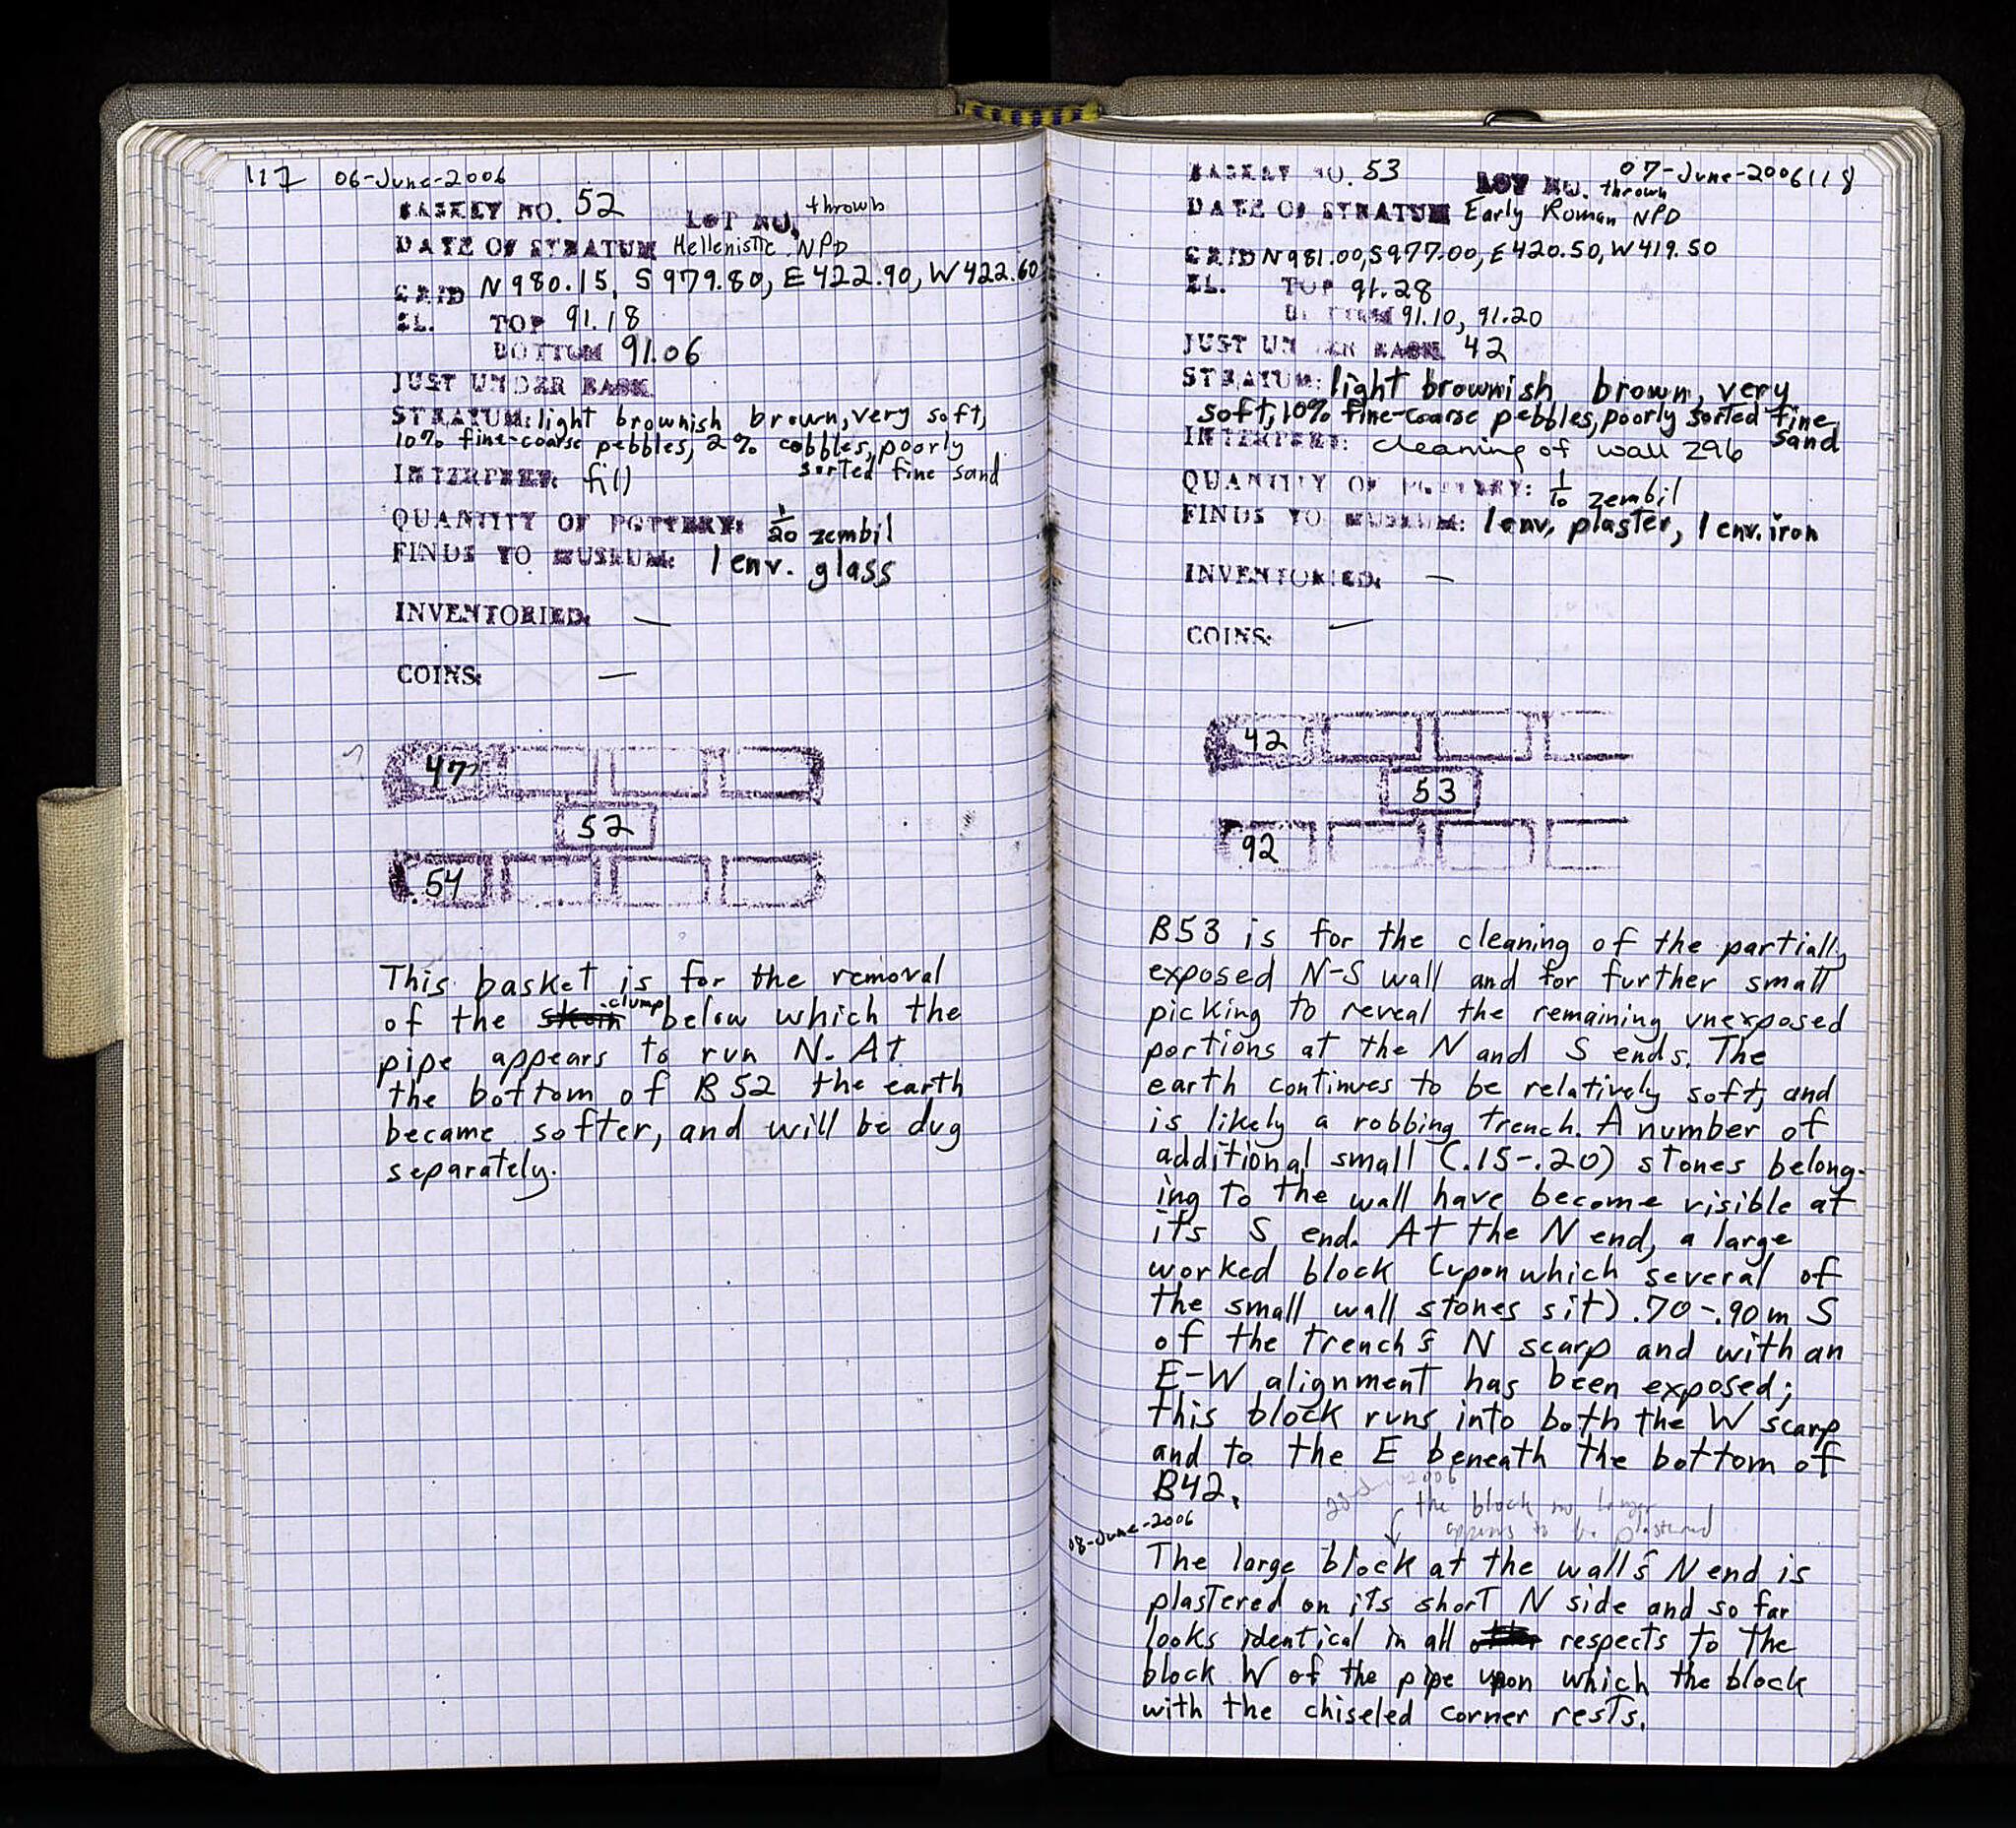 117 06-June-2006
BASKET NO. 52 LOT NO. thrown
DATE OF STRATUM Hellenistic NPD
GRID N980.15, S979.80, E422.90, W422.60
EL. TOP 91.18
BOTTOM 91.06
JUST UNDER BASK.
STRATUM: light brownish brown, very soft,
10% fine-coarse pebbles, 2% cobbles, poorly
sorted fine sand
INTERPRET: fill
QUANTITY OF POTTERY: 1/20 zembil
FINDS TO MUSEUM: 1 env. glass
INVENTORIED: —
COINS: —
47
52
54
This basket is for the removal
of the clump below which the
pipe appears to run N. At
the bottom of B52 the earth
became softer, and will be dug
separately.
07-June-2006 118
BASKET NO. 53 LOT NO. thrown
DATE OF STRATUM Early Roman NPD
GRID N981.00, S977.00, E420.50, W419.50
EL. TOP 91.28
BOTTOM 91.10, 91.20
JUST UNDER BASK. 42
STRATUM: light brownish brown, very
soft, 10% fine-coarse pebbles, poorly sorted fine
sand
INTERPRET: cleaning of wall 296
QUANTITY OF POTTERY: 1/10 zembil
FINDS TO MUSEUM: 1 env. plaster, 1 env. iron
INVENTORIED: —
COINS: —
42
53
92
B53 is for the cleaning of the partially
exposed N-S wall and for further small
picking to reveal the remaining unexposed
portions at the N and S ends. The
earth continues to be relatively soft, and
is likely a robbing trench. A number of
additional small (.15-.20) stones belong-
ing to the wall have become visible at
its S end. At the N end, a large
worked block (upon which several of
the small wall stones sit) .70-.90m S
of the trench's N scarp and with an
E-W alignment has been exposed;
this block runs into both the W scarp
and to the E beneath the bottom of
B42.
2006
the block no longer
appears to be plastered
08-June-2006
The large block at the wall's N end is
plastered on its short N side and so far
looks identical in all respects to the
block W of the pipe upon which the block
with the chiseled corner rests.